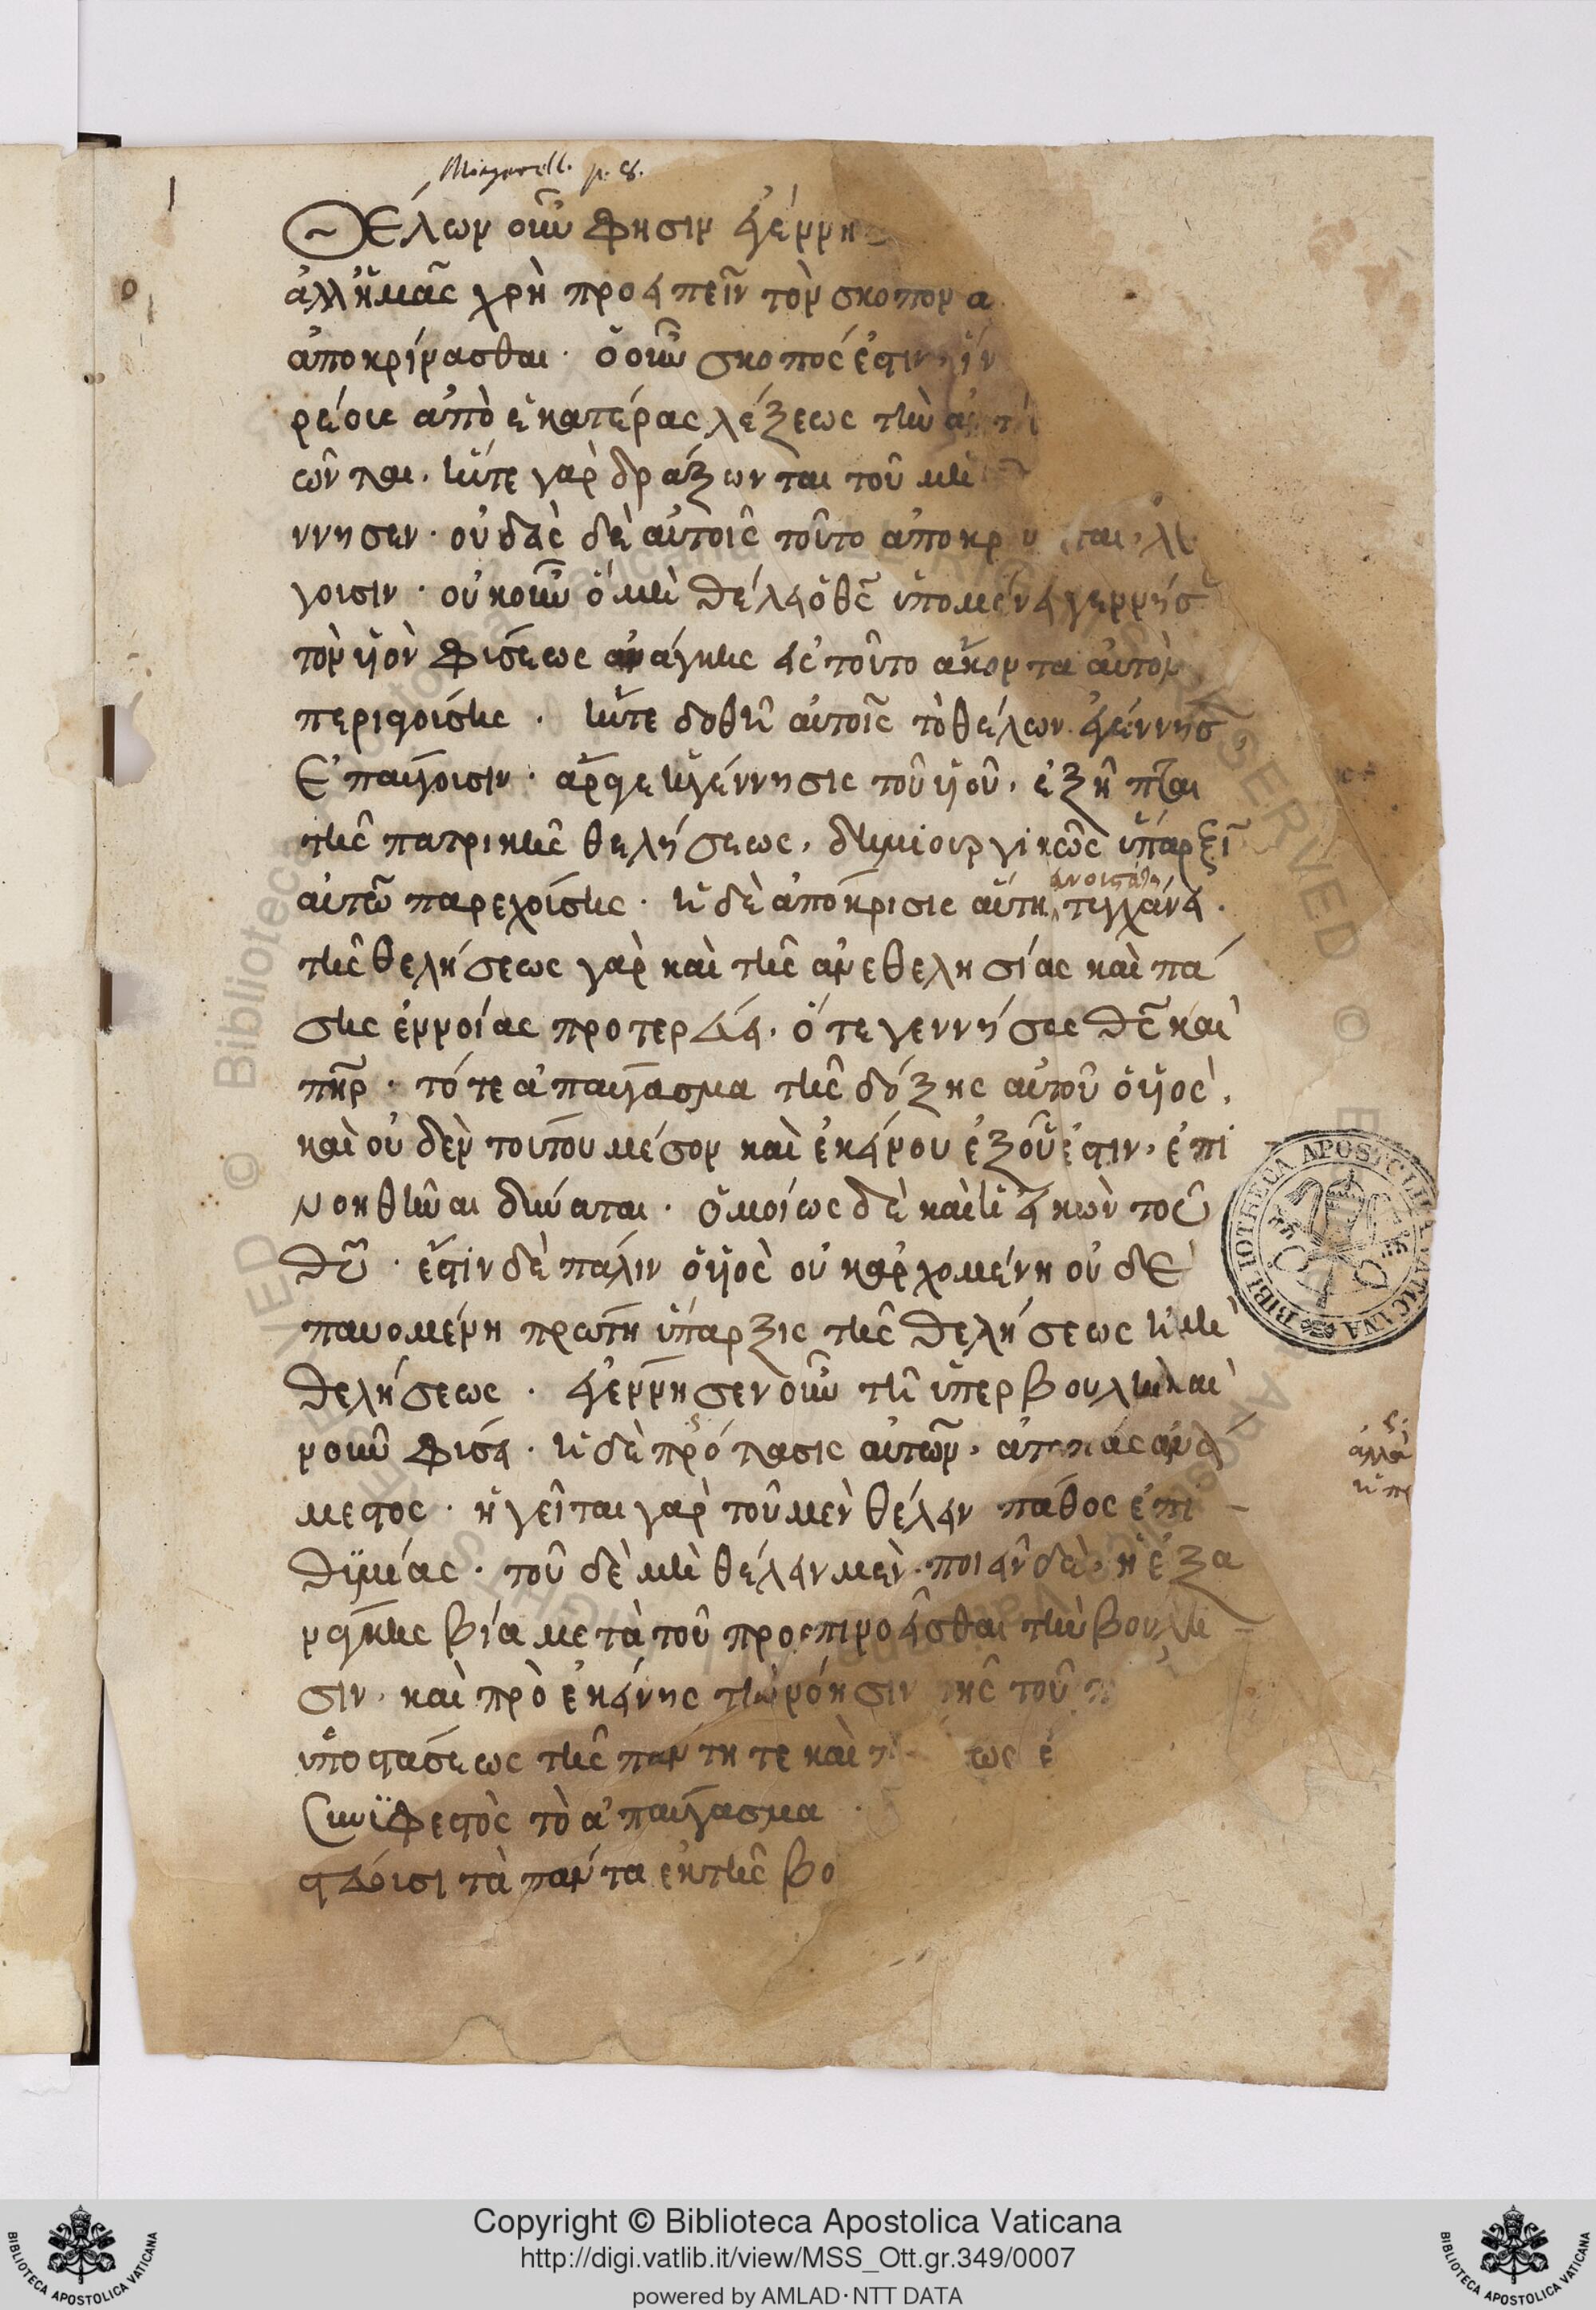 Mingarell. p. 8.
Θέλων οὖν φησιν ἐγέννη
ἀλλ' ἡμᾶς χρὴ προειπεῖν τὸν σκοπον α
ἀποκρίνασθαι· ὁ οὖν σκοπός ἐστιν
ρέσει ἀπὸ ἑκατέρας λέξεως τὴν
σῶνται· ἤτε γὰρ δράξωνται τοῦ μὴ
ννησεν· οὐδεὶς δὲ αὐτοῖς τοῦτο ἀποκρ ται, λέ
γουσιν· οὐκοῦν ὃ μὴ θέλει ὁ θς ὑπομένει γεννήσ
τὸν υἱὸν φύσεως ἀνάγκης εἰς τοῦτο ἄκοντα αὐτὸν
περιστούσης· ἤτε δοθῆ αὐτοῖς τὸ θέλων ἐγέννησ
ἐπάγουσιν· ἄρξεται ἡ γέννησις τοῦ υἱοῦ, ἐξῆπται
τῆς πατρικῆς θελήσεως, δημιουργικῶς ὕπαρξιν
αὐτῶ παρεχούσης· ἡ δὲ ἀπόκρισις αὕτη τυγχάνει·
τῆς θελήσεως γὰρ καὶ τῆς ἀνεθελησίας καὶ πά
σης ἐννοίας προτερεύει, ὅ τε γεννήσας θς καὶ
πηρ· τό τε ἀπαύγασμα τῆς δόξης αὐτοῦ ὁ υἱος,
καὶ οὐδεν τούτου μέσον καὶ ἐκείνου ἐξ οὗ ἐστιν, ἐπι
νοηθῆναι δύναται· ὁμοίως δὲ καὶ ἡ εἰκὼν τοῦ
θυ· ἔστιν δὲ πάλιν ὁ υἱὸς οὐκ ἀρχομένη οὐδὲ
παυομένη πρώτη ὕπαρξις τῆς θελήσεως ἢ μὴ
θελήσεως· ἐγέννησεν οὖν τῆ ὑπερ βουλὴν καὶ
νοῦν φύσει· ἡ δὲ πρότασις αὐτῶν,
μεστος· ἡγεῖται γὰρ τοῦ μὲν θέλειν πάθος ἐπι
θυμίας· τοῦ δὲ μὴ θέλειν μὲν, ποιεῖν δὲ, ἡ ἐξα
νάγκης βία μετὰ τοῦ προεπινοεῖσθαι τὴν βούλη
σιν, καὶ πρὸ ἐκείνης τὴν νόησιν τῆς τοῦ
ὑποστάσεως τῆς πάντη τε καὶ
συνυφεστὸς τὸ ἀπαύγασμα
τὰ πάντα ἐκ τῆς βο
ἀλλὰ
BIBLIOTECA APOSTOLICA VATICANA
Copyright © Biblioteca Apostolica Vaticana
http://digi.vatlib.it/view/MSS_Ott.gr.349/0007
powered by AMLAD·NTT DATA